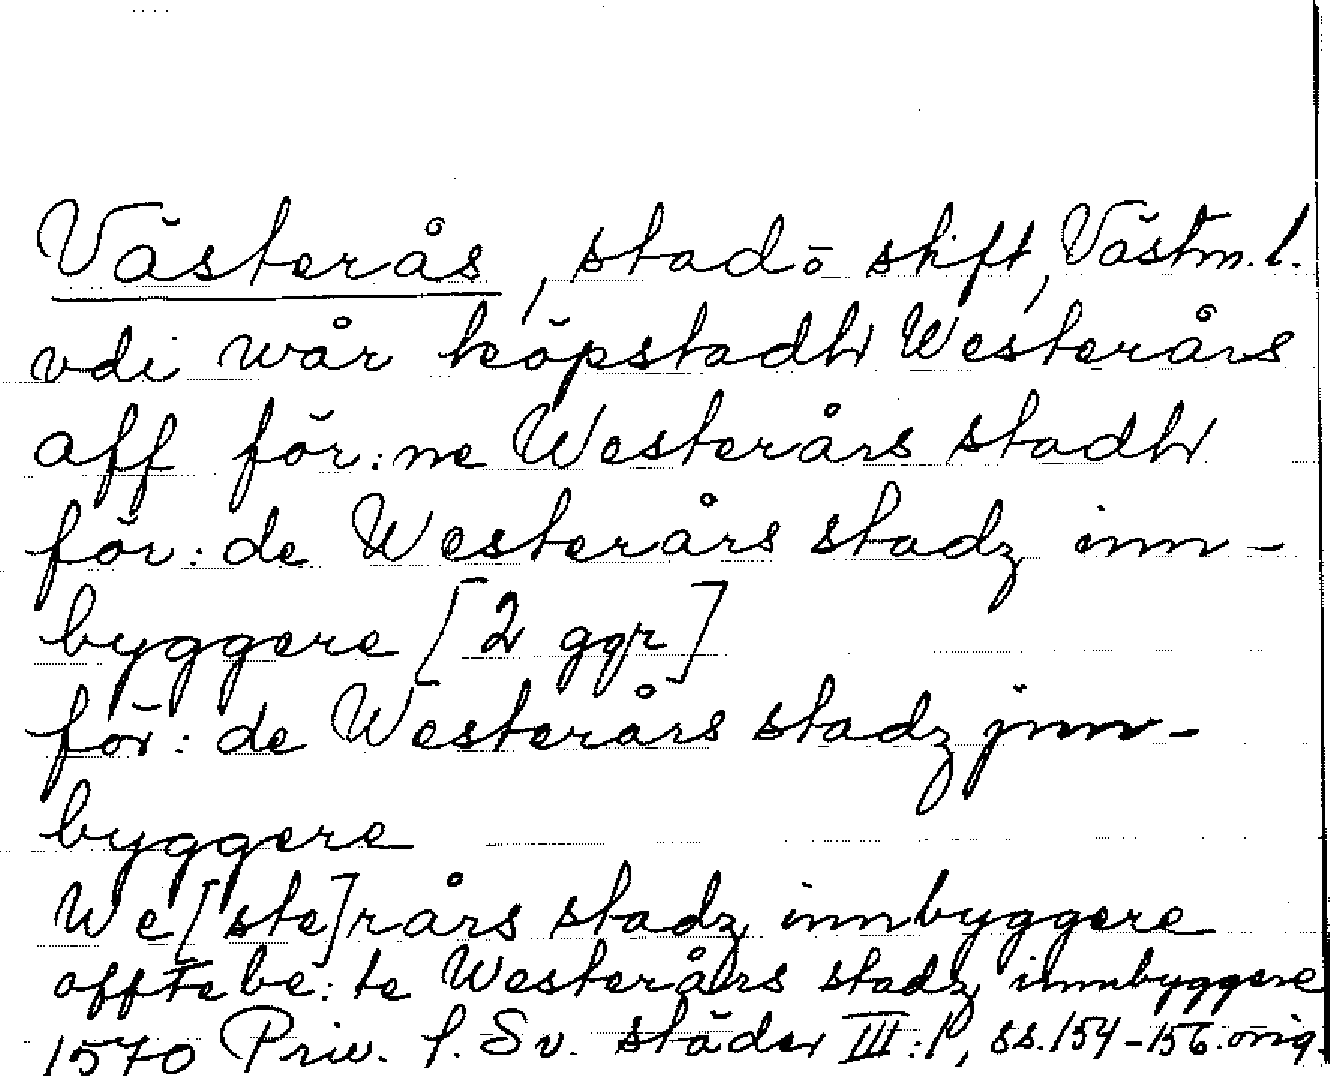 Västerås, stad o skift, Västm. l.
vdi wår köpstadh Westerårs
aff för:ne Westerårs stadh
för:de Westerårs stadz inn-
byggere [2 ggr]
för:de Westerårs stadz jnn-
byggere
We[ste]rårs stadz innbyggere
offtebe:te Westerårs stadz innbyggere
1570 Priv. f. Sv. städer III:1, ss.154-156. orig.